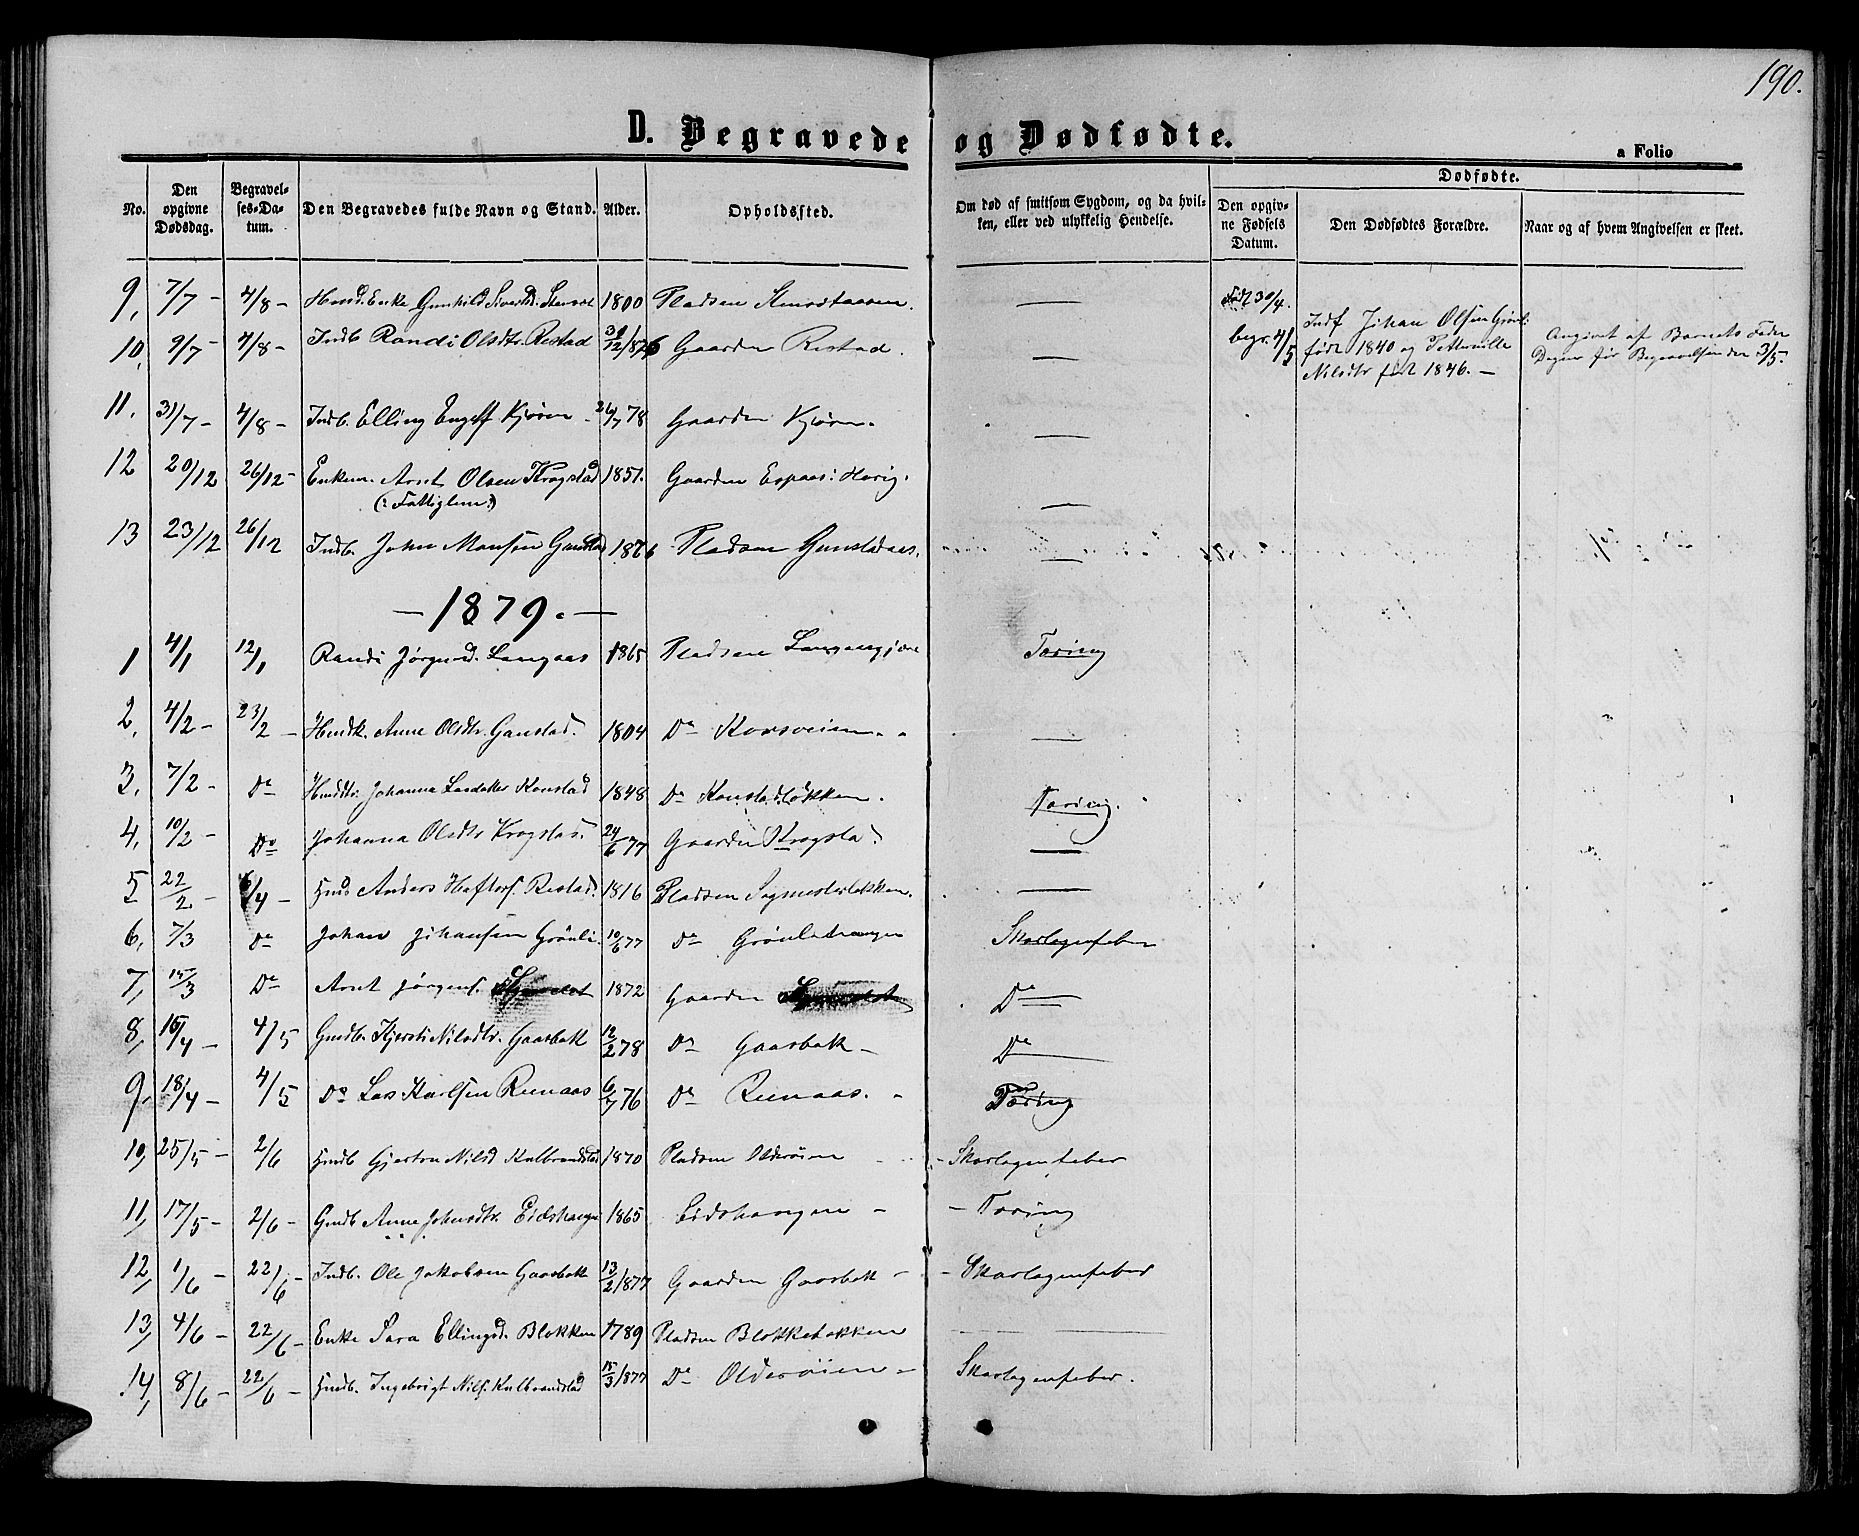 190.
D. Begravede og Dødfødte.
a Folio
No. | Den opgivne Dødsdag. | Begravelses-Datum. | Den Begravedes fulde Navn og Stand. | Alder. | Opholdssted. | Om død af smitsom Sygdom, og da hvilken, eller ved ulykkelig Hendelse. | Dødfødte. | Den opgivne Fødsels Datum. | Den Dødfødtes Forældre. | Naar og af hvem Angivelsen er skeet.
9, 7/7 - 4/8 - Enke Gunhild Sivertsd. 1800 Pladsen —
Født 30/4. begr. 4/5
Indf Johan Olsen Grønli født 1840 og Nilsdtr født 1846. —
Angivet af Barnets Fader Dagen før Begravelsen den 3/5.
10, 9/7 - 4/8 - Indb Randi Olsdtr. Restad 30/12/876 Gaarden Restad. —
11. 31/7 - 4/8 - Indb. Elling Kjøren - 26/7 78 Gaarden Kjøren. —
12 20/12 26/12 - Enkem. Arnt Olsen Krogstad 1851. Gaarden Espaas: Horig. —
(: Fattiglem:)
13 23/12 26/12 Indb. John Monsen 1876 Pladsen Gunstadaas. —
— 1879. —
1 4/1 12/1 Randi Jørgensd. Langaas 1865 Pladsen Tæring
2, 4/2 - 23/2 - Husmk. Anne Olsdtr. Gunstad. 1804 Do Korsveien. —
3, 7/2 - Do Johanna Larsdatter Konstad 1848 Do Konstadløkken. Tæring.
4, 10/2 - Do Johanna Olsdtr Krogstad. 24/6 77 Gaarden Krogstad. —
5 22/2 - 4/4 - Husm Anders Haftors. Restad. 1816 Pladsen —
6, 7/3 Do Johan Johansen Grönli. 10/6 77 Do Skarlagenfeber
7, 15/3 Do Arnt Jørgens. 1872 Gaarden Do —
8, 15/4 - 4/5 Gmdb. Kjersti Nilsdtr. Gaasbak 12/2 78 Do Gaasbak - Do —
9, 18/4 - 4/5 Do Lars Karlsen Reenaas 6/7 76 Do Reenaas. - Tæring
10, 25/5 - 2/6 Husmb Gjertru Nilsd Kulbrandstad 1870 Pladsen Olderöien - Skarlagenfeber
11, 17/5 - 2/6 - Gmdb Anne Johnsdtr. Eidshaugen 1865 Eidshaugen - - Tæring
12, 1/6 - 22/6 - Indb. Ole Jakobsen Gaasbak 13/2/877 Gaarden Gaasbak - - Skarlagenfeber
13, 4/6 - 22/6 - Enke Sara Ellingsd. Blokken 1789 Pladsen —
14, 8/6 - 22/6 - Husmb. Ingebrigt Nils. Kulbrandstad 15/3/877 Do Olderöien - Skarlagenfeber.